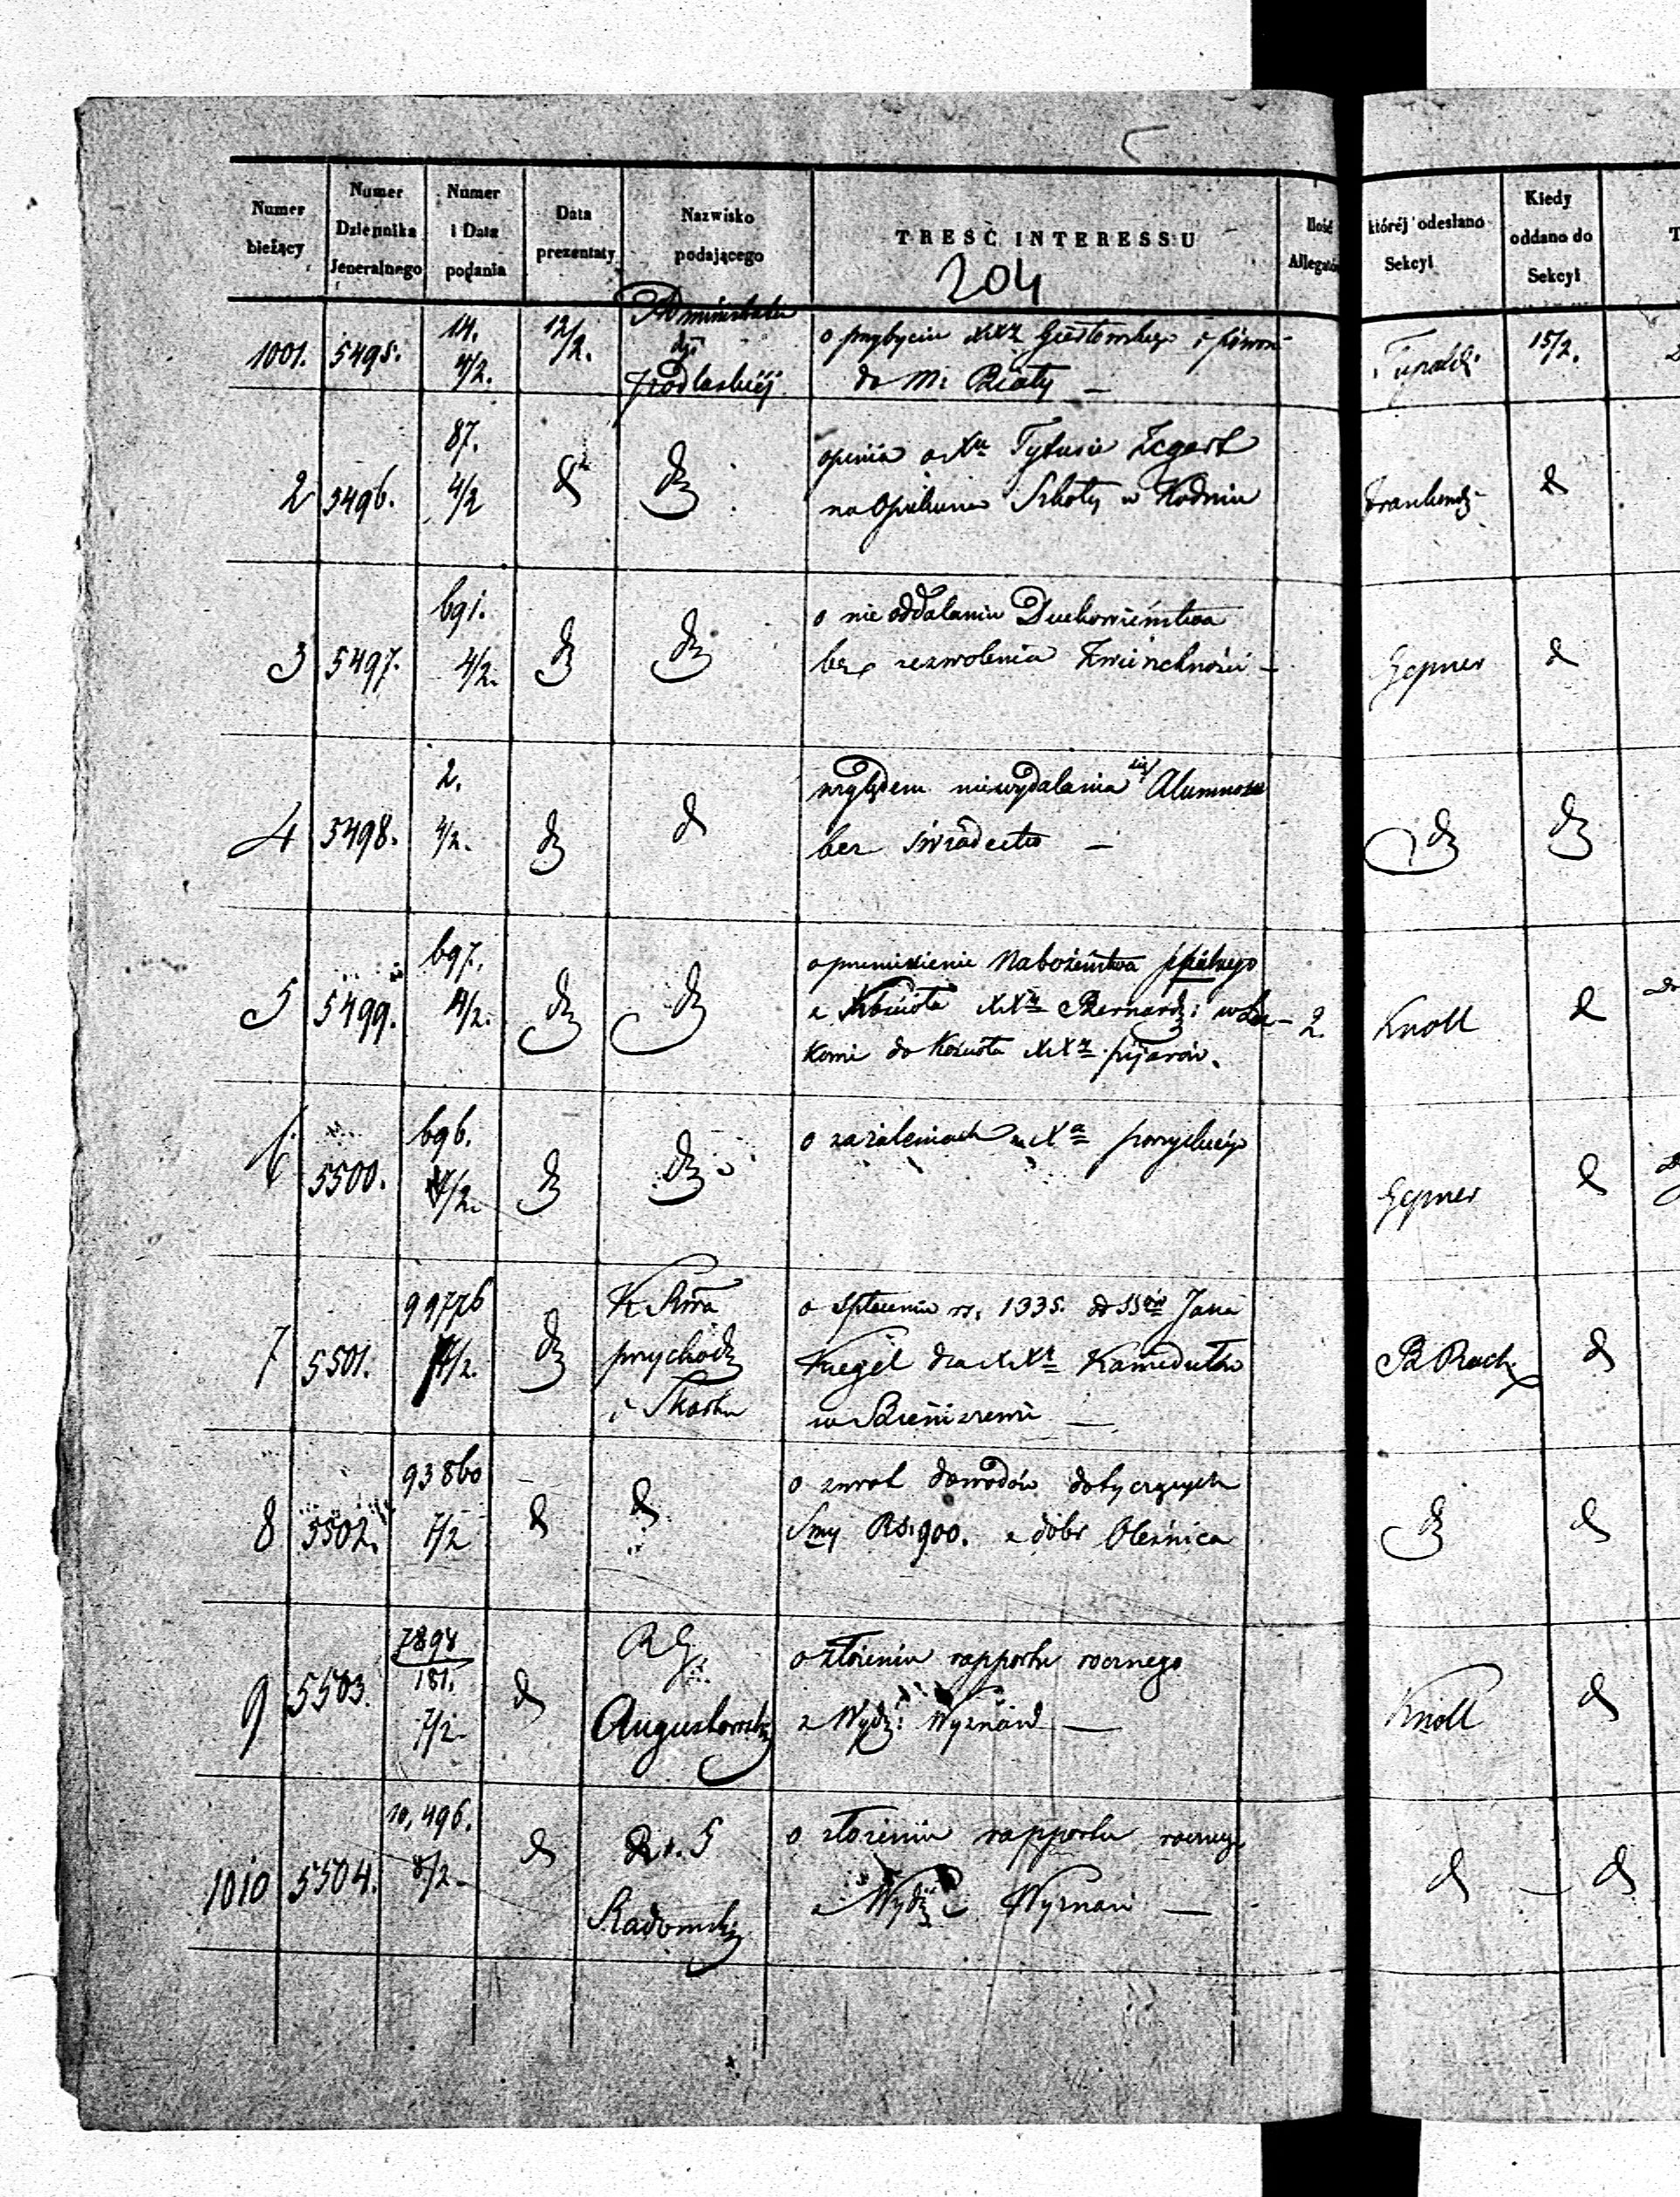 Numer bieżący
Numer Dziennika Jeneralnego
Numer i Data podania
Data prezentaty
Nazwisko podającego
TREŚĆ INTERESSU
Ilość
któréj odesłano Sekcyi
Kiedy oddano do Sekcyi
204
1001. 5495. 14. 4/2. 12/2. Podlaskiéj
o przybyciu XXy i
do M. Biały —
15/2.
2 5496. 87. 4/2 d dz
opinia o Xu Tytusie
na Opiekuna Szkoły w Kodniu
d
3 5497. 691. 4/2. dz dz
o nie oddalaniu Duchowieństwa
bez zezwolenia Zwierzchności —
Gepner d
4 5498. 2. 4/2. dz d
względem niewydalania się Alumnów
bez świadectw —
dz dz
5 5499. 697. 4/2. dz dz
o przeniesienie Nabożeństwa
z Kościoła XXy Bernardz: w Łu- 2.
kowie do Kościoła XXy pijarów.
Knoll d
6 5500. 696. 4/2. dz dz
o zażaleniach Xa
Gepner d
7 5501. 99776 7/2. dz K. Rzra
przychodz
i Skarbu
o spłacenie rs. 1335. od SSów Jana
Kregel dla XXy Kamedułów
w Bieniszewie —
d
8 5502. 93860 7/2 d d
o zwrot dowodów dotyczących
Smy Rs. 900. z dóbr Oleśnica
dz d
9 5503. 7898/181. 7/2. d R G
Augustowski
o złożeniu rapportu rocznego
z Wydz: Wyznań —
Knoll d
1010 5504. 10,496. 8/2. d R. G
Radomski
o złożeniu rapportu rocznego
z Wydz: Wyznań —
d — d